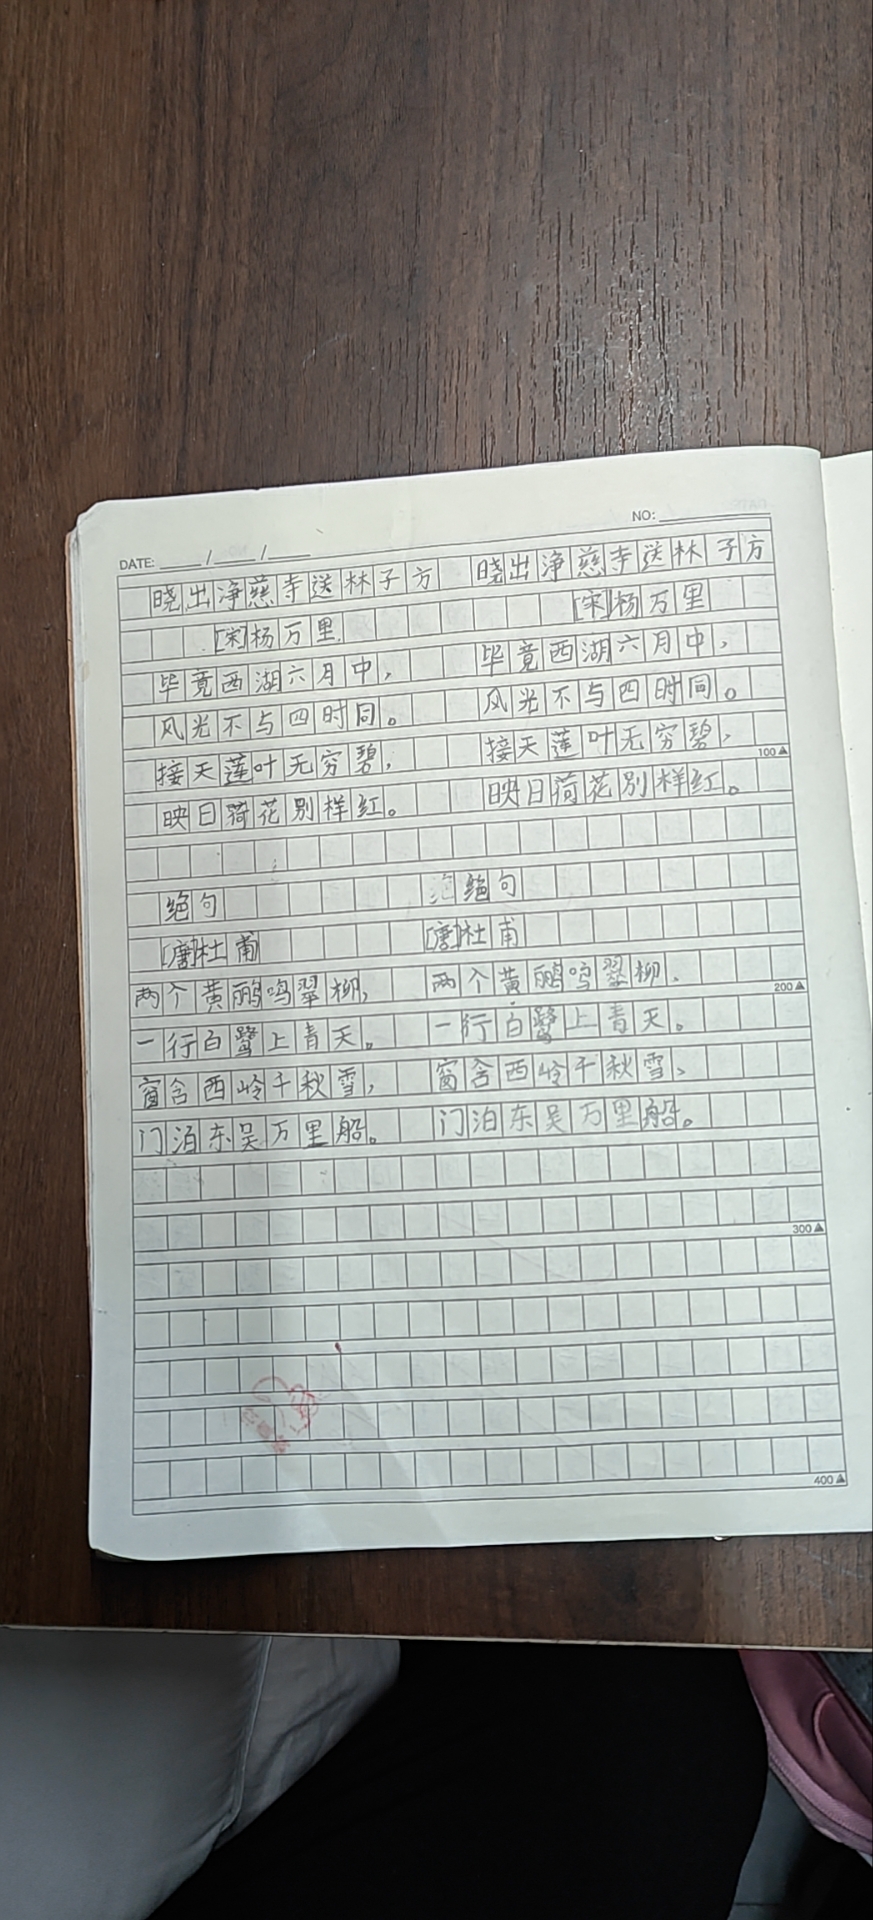 NO:
DATE: / /
晓出净慈寺送林子方 晓出净慈寺送林子方
[宋]杨万里 [宋]杨万里
毕竟西湖六月中， 毕竟西湖六月中，
风光不与四时同。 风光不与四时同。
接天莲叶无穷碧， 接天莲叶无穷碧，
100▲
映日荷花别样红。 映日荷花别样红。
绝句 绝句
[唐]杜甫 [唐]杜甫
两个黄鹂鸣翠柳， 两个黄鹂鸣翠柳，
200▲
一行白鹭上青天。 一行白鹭上青天。
窗含西岭千秋雪， 窗含西岭千秋雪，
门泊东吴万里船。 门泊东吴万里船。
300▲
400▲